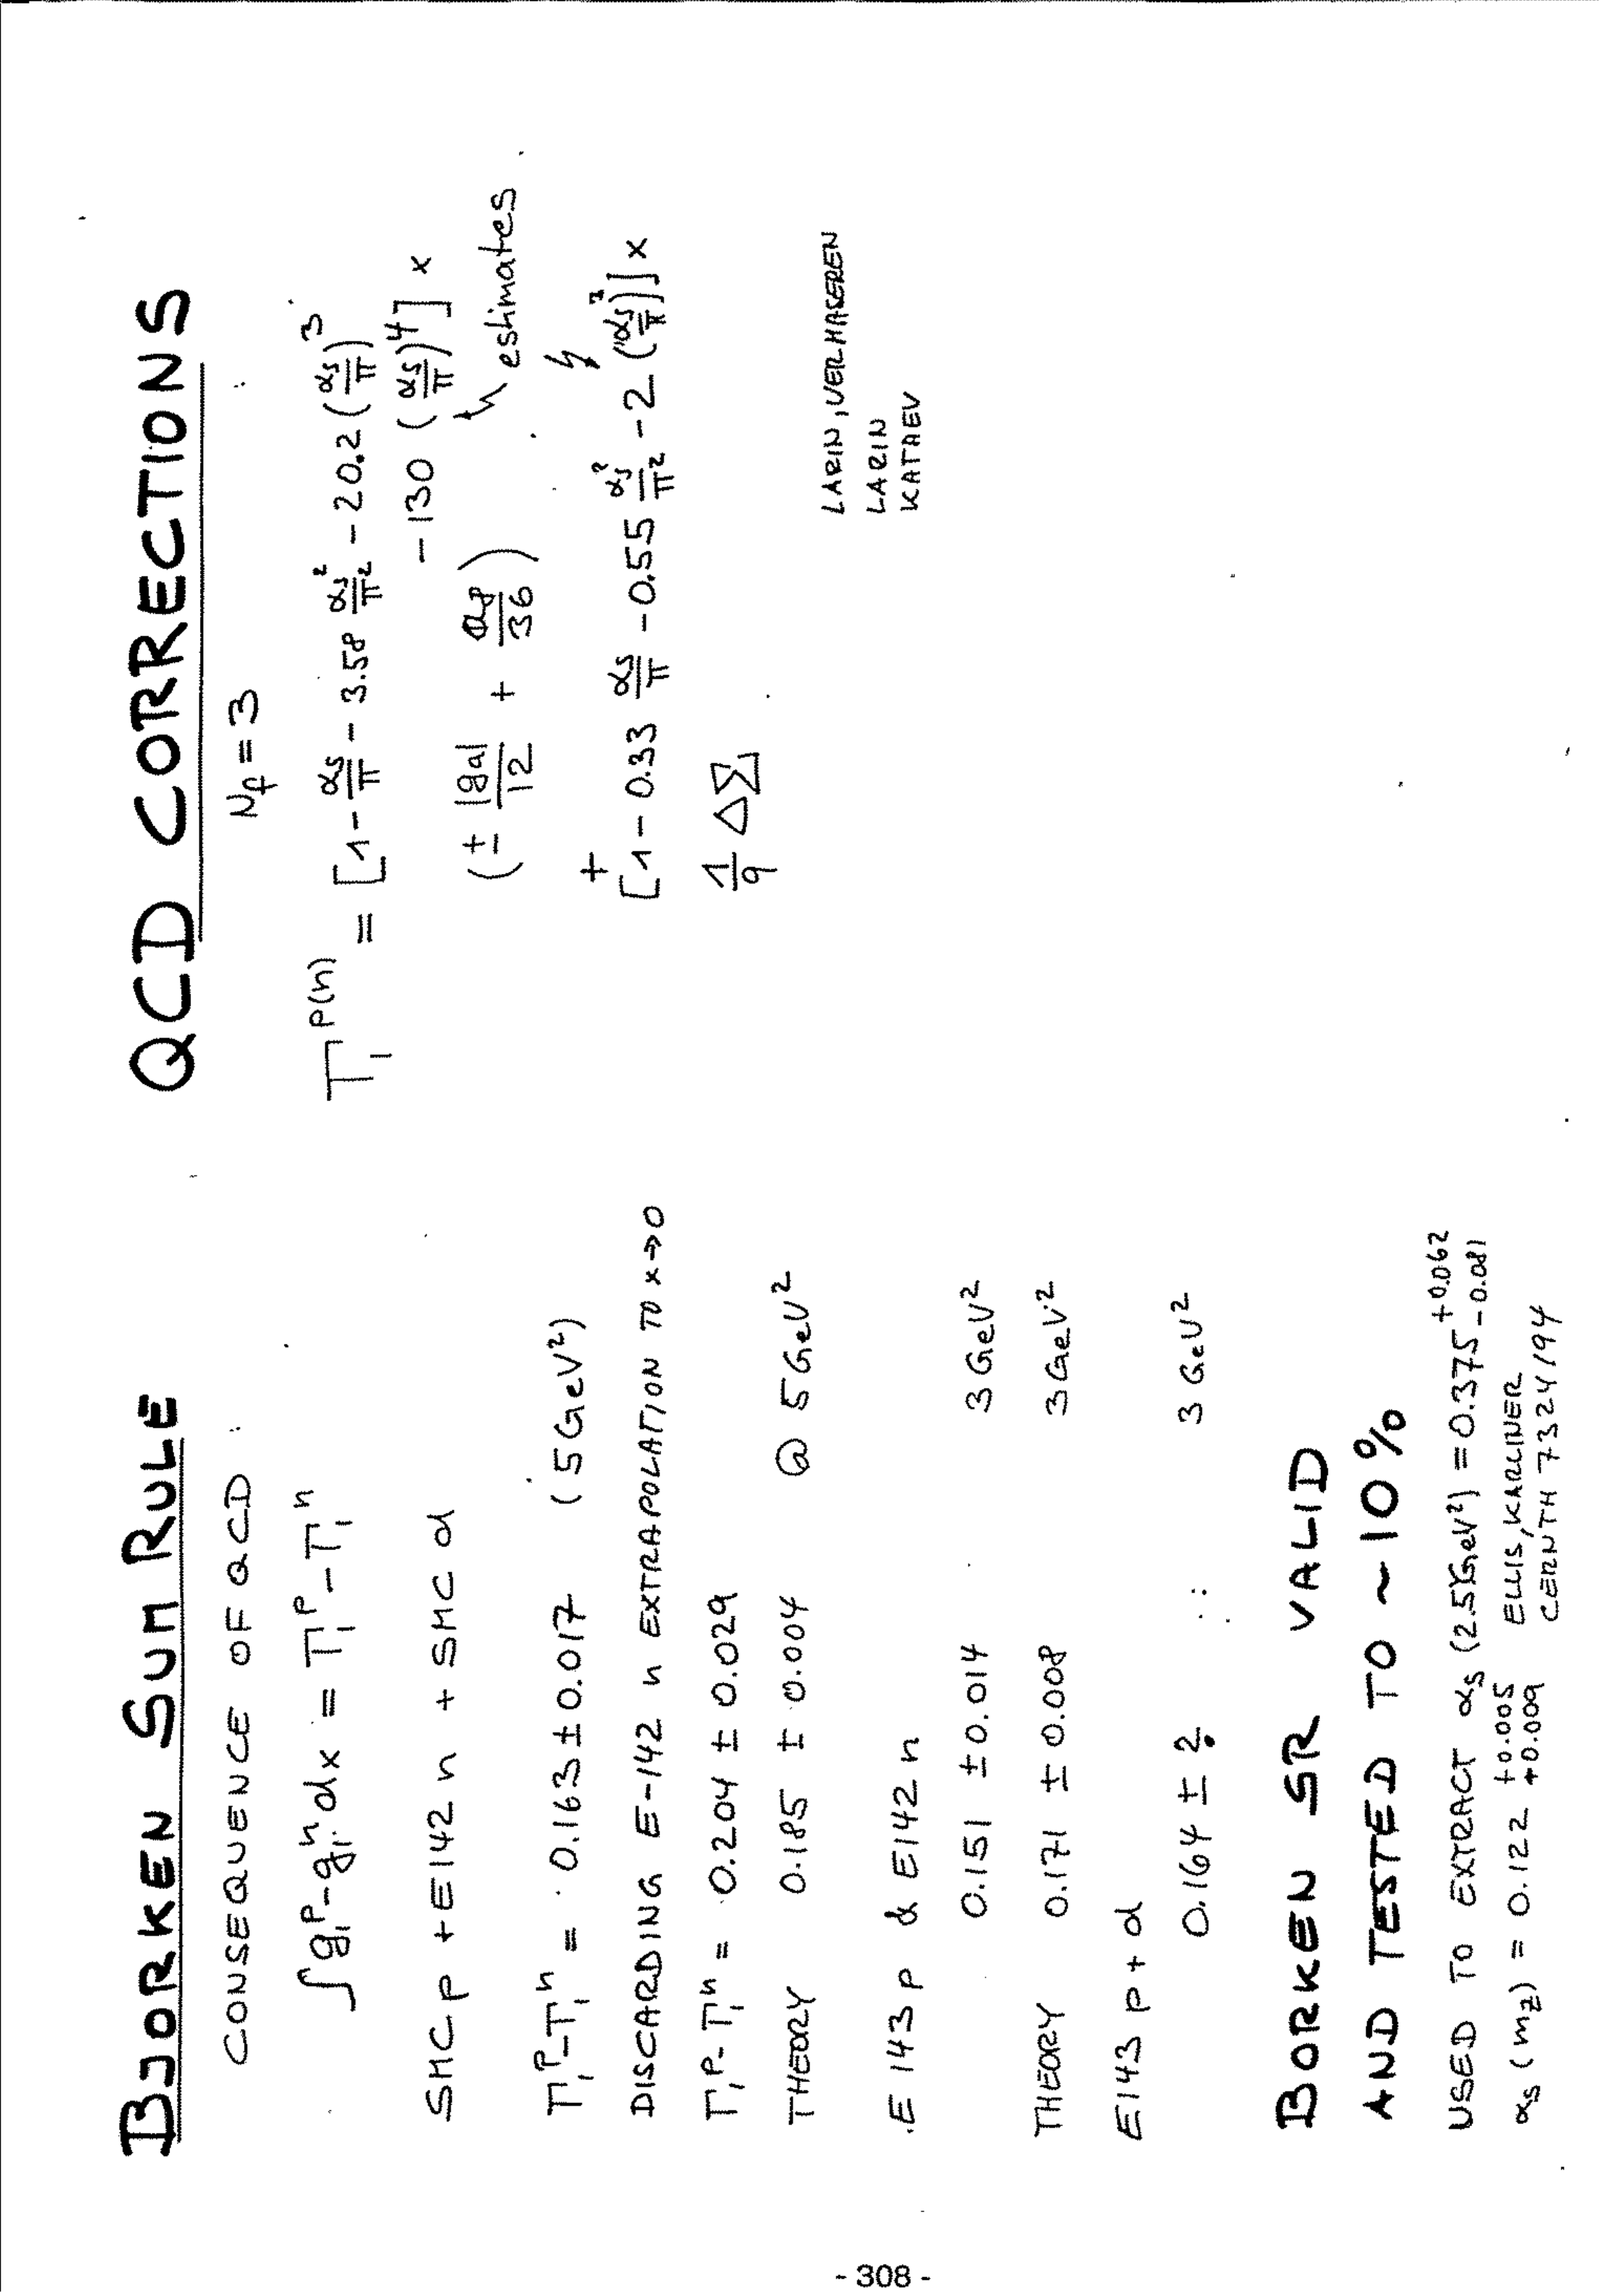 BJORKEN SUM RULE
CONSEQUENCE OF QCD
∫g₁ᵖ-g₁ⁿ dx = Γ₁ᵖ - Γ₁ⁿ
SMC p + E142 n + SMC d
Γ₁ᵖ-Γ₁ⁿ = 0.163±0.017 (5GeV²)
DISCARDING E-142 n EXTRAPOLATION TO x→0
Γ₁ᵖ-Γ₁ⁿ = 0.204 ± 0.029
THEORY 0.185 ± 0.004 @ 5GeV²
E143 p & E142 n
0.151 ±0.014 3GeV²
THEORY 0.171 ± 0.008 3GeV²
E143 p+d
0.164 ± ? 3GeV²
BORKEN SR VALID
AND TESTED TO ~10%
USED TO EXTRACT αs (2.5GeV²) = 0.375 +0.062 -0.081
αs(mz) = 0.122 +0.005 +0.009 ELLIS, KARLINER
CERNTH 7324/94
QCD CORRECTIONS
Nf=3
Γ₁ᵖ⁽ⁿ⁾ = [1 - αs/π - 3.58 αs²/π² - 20.2 (αs/π)³
-130 (αs/π)⁴] x
estimates
(± |ga|/12 + a8/36)
+
[1 - 0.33 αs/π - 0.55 αs²/π² - 2 (αs/π)³] x
1/9 ΔΣ
LARIN, VERHASEREN
LARIN
KATAEV
- 308 -